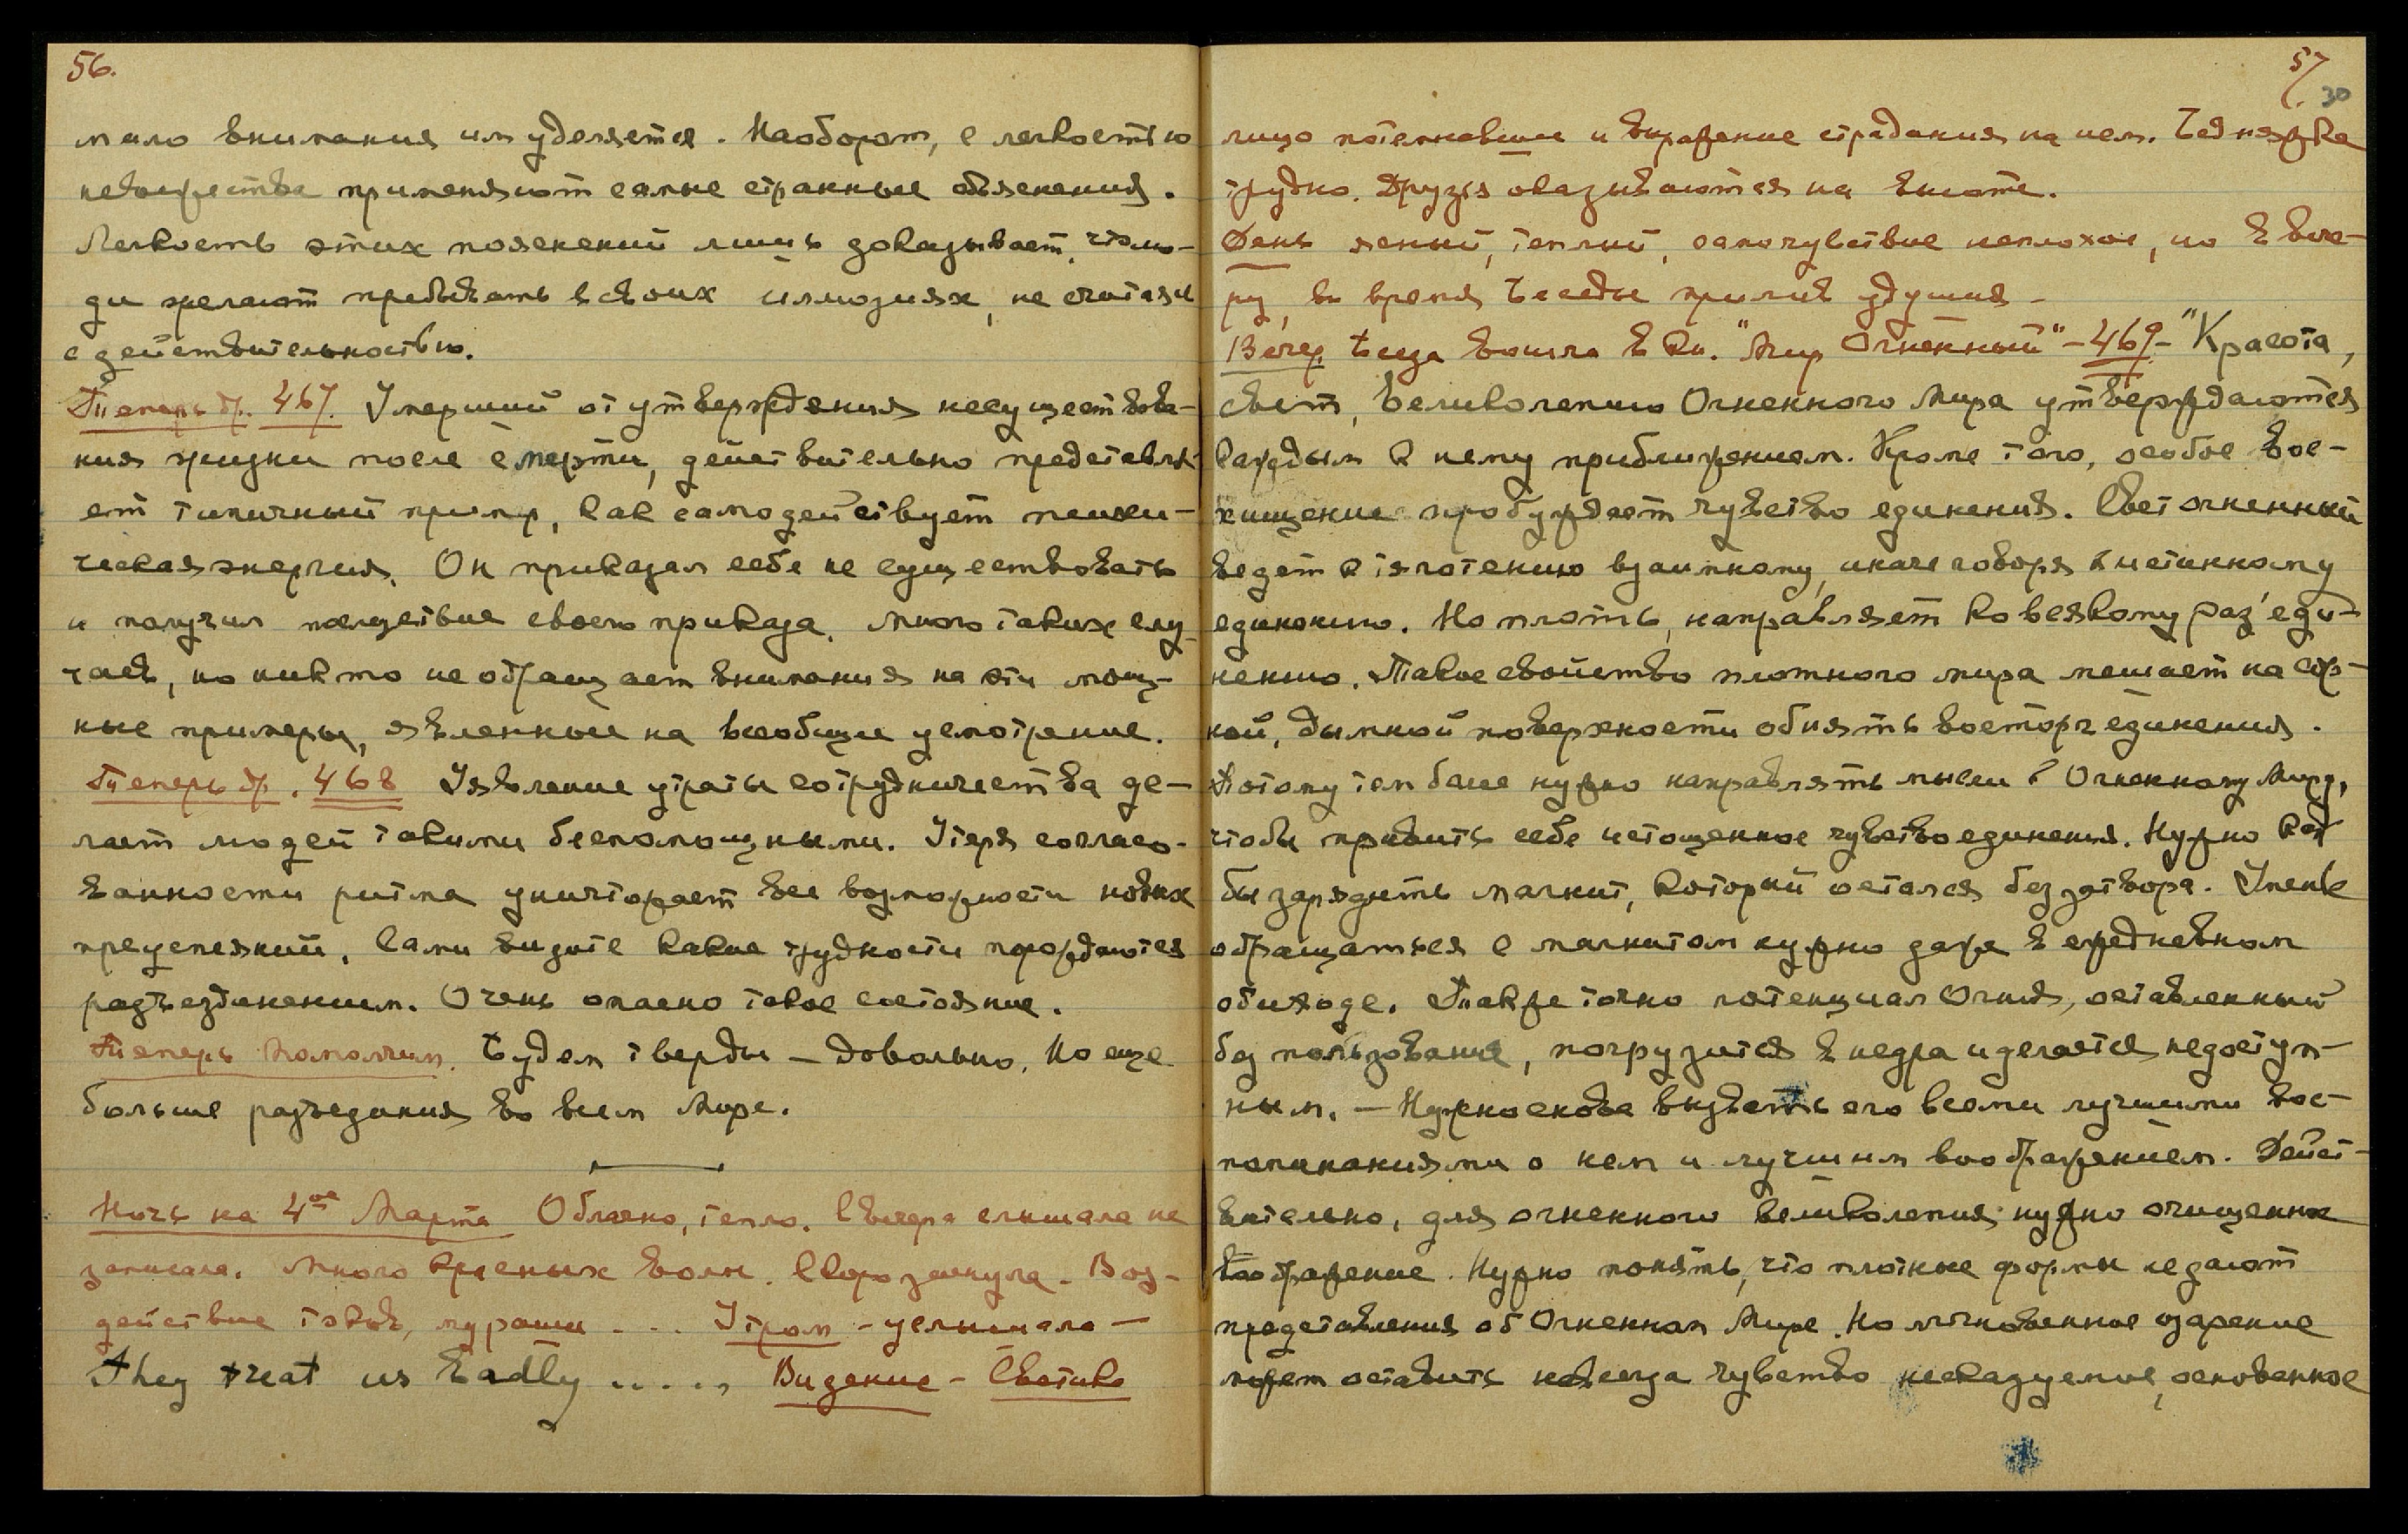 56.
мало внимания им уделяется. Наоборот, с легкостью
невежества применяют самые странные объяснения.
Легкость этих пояснений лишь доказывает, что лю-
ди желают пребывать в своих иллюзиях, не считаясь
с действительностью.
Теперь др. 467. Умерший от утверждения несуществова-
ния жизни после смерти, действительно представля-
ет типичный пример, как самодействует психи-
ческая энергия. Он приказал себе не существовать
и получил последствие своего приказа. Много таких слу-
чаев, но никто не обращает внимания на эти мощ-
ные примеры, явленные на всеобщее усмотрение.
Теперь др. 468 Уявление утраты сотрудничества де-
лает людей такими беспомощными. Утеря согласо-
ванности ритма уничтожает все возможности новых
преуспеяний. Сами видите какие трудности порождаются
разъединением. Очень опасно такое состояние.
Теперь помолчим. Будем тверды – довольно. Но еще
больше разъедания во всем Мире.
Ночь на 4ое Марта Облачно, тепло. С вечера слышала не
записала. Много красных волн. Скоро заснула. Воз-
действие токов, мураши ... Утром – услышала –
They treat us badly ..... Видение – Светик
57
30
лицо потемневшее и выражение страдания на нем. Бедняжке
трудно. Друзья оказываются на высоте.
День ясный, теплый, самочувствие неплохое, но к вече-
ру, во время беседы прилив удушия –
Вечер. Беседа вошла в кн. "Мир Огненный" – 469 – "Красота,
свет, великолепие Огненного Мира утверждаются
каждым к нему приближением. Кроме того, особое вос-
хищение пробуждает чувство единения. Свет огненный
ведет к тяготению взаимному, иначе говоря к истинному
единению. Но плоть, направляет ко всякому раз'еди-
нению. Такое свойство плотного мира мешает на сор-
ной, дымной поверхности обнять восторг единения.
Потому тем более нужно направлять мысли к Огненному Миру,
чтобы привить себе истощенное чувство единения. Нужно как
бы зарядить магнит, который остался без затвора. Уменье
обращаться с магнитом нужно даже в ежедневном
обиходе. Так же точно потенциал Огня, оставленный
без пользования, погрузится в недра и делается недоступ-
ным. – Нужно снова вызвать его всеми лучшими вос-
поминаниями о нем и лучшим воображением. Дейст-
вительно, для огненного великолепия нужно очищенное
воображение. Нужно понять, что плотные формы не дают
представления об Огненном Мире. Но мгновенное озарение
может оставить навсегда чувство несказуемое, основанное